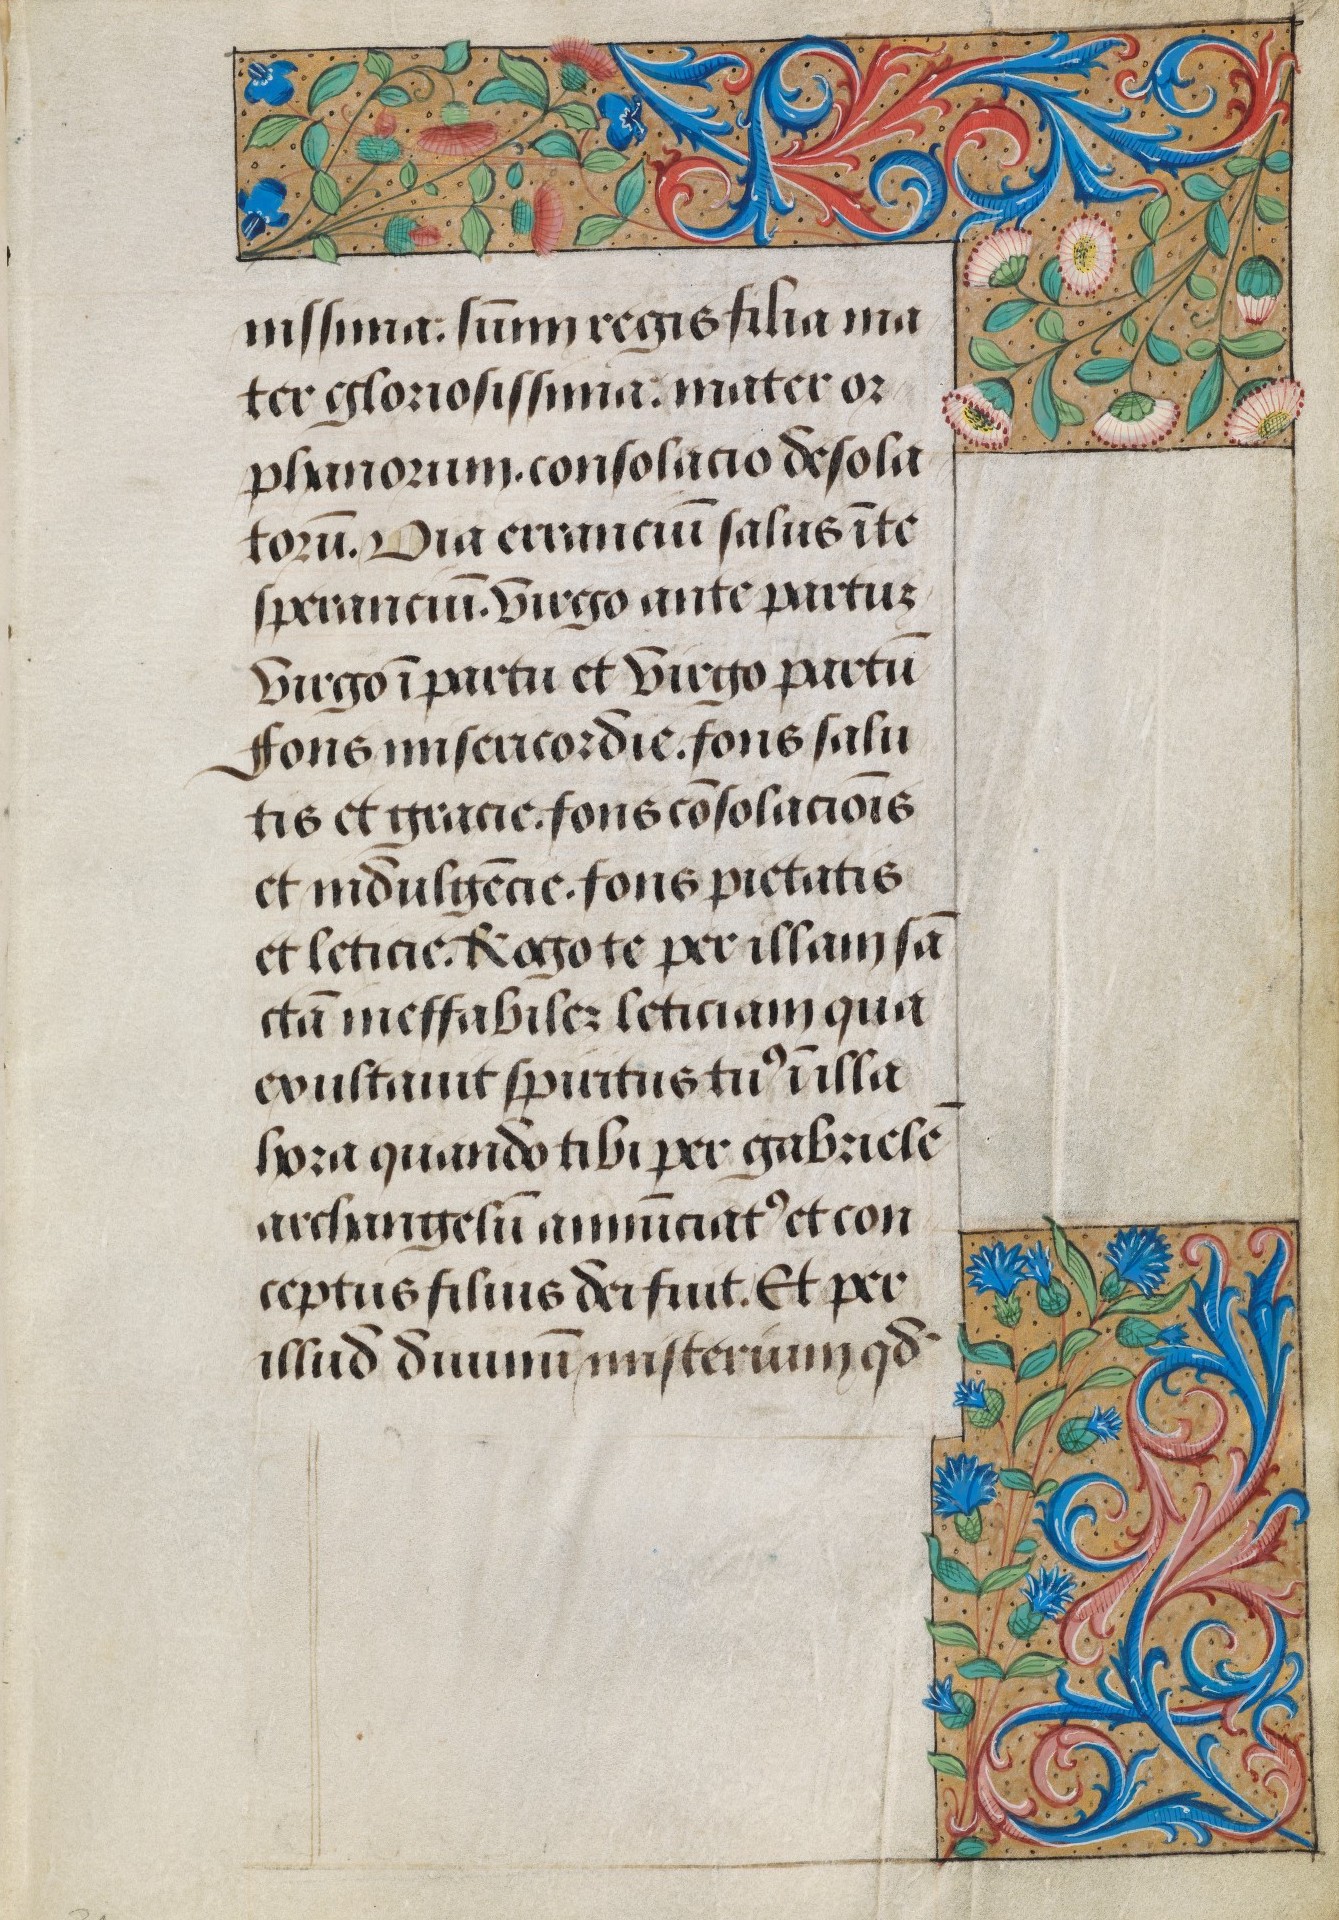 nissima. sum̄i regis filia ma
ter gloriosissima. mater or
phanorum. consolacio desola
torū. Via erranciū salus ī te
speranciū. Virgo ante partuꝫ
Virgo ī partu et Virgo p̱artū
Fons misericordie. fons salu
tis et gracie. fons cōsolaciōis
et indulgēcie. fons pietatis
et leticie. Rogo te per illam sā
ctā ineffabileꝫ leticiam qua
exultauit spiritus tuꝰ ī illa
hora quando tibi per gabrielē
archangelū annūciatꝰ et con
ceptus filius dei fuit. Et per
illud diuinū misterium qd̄